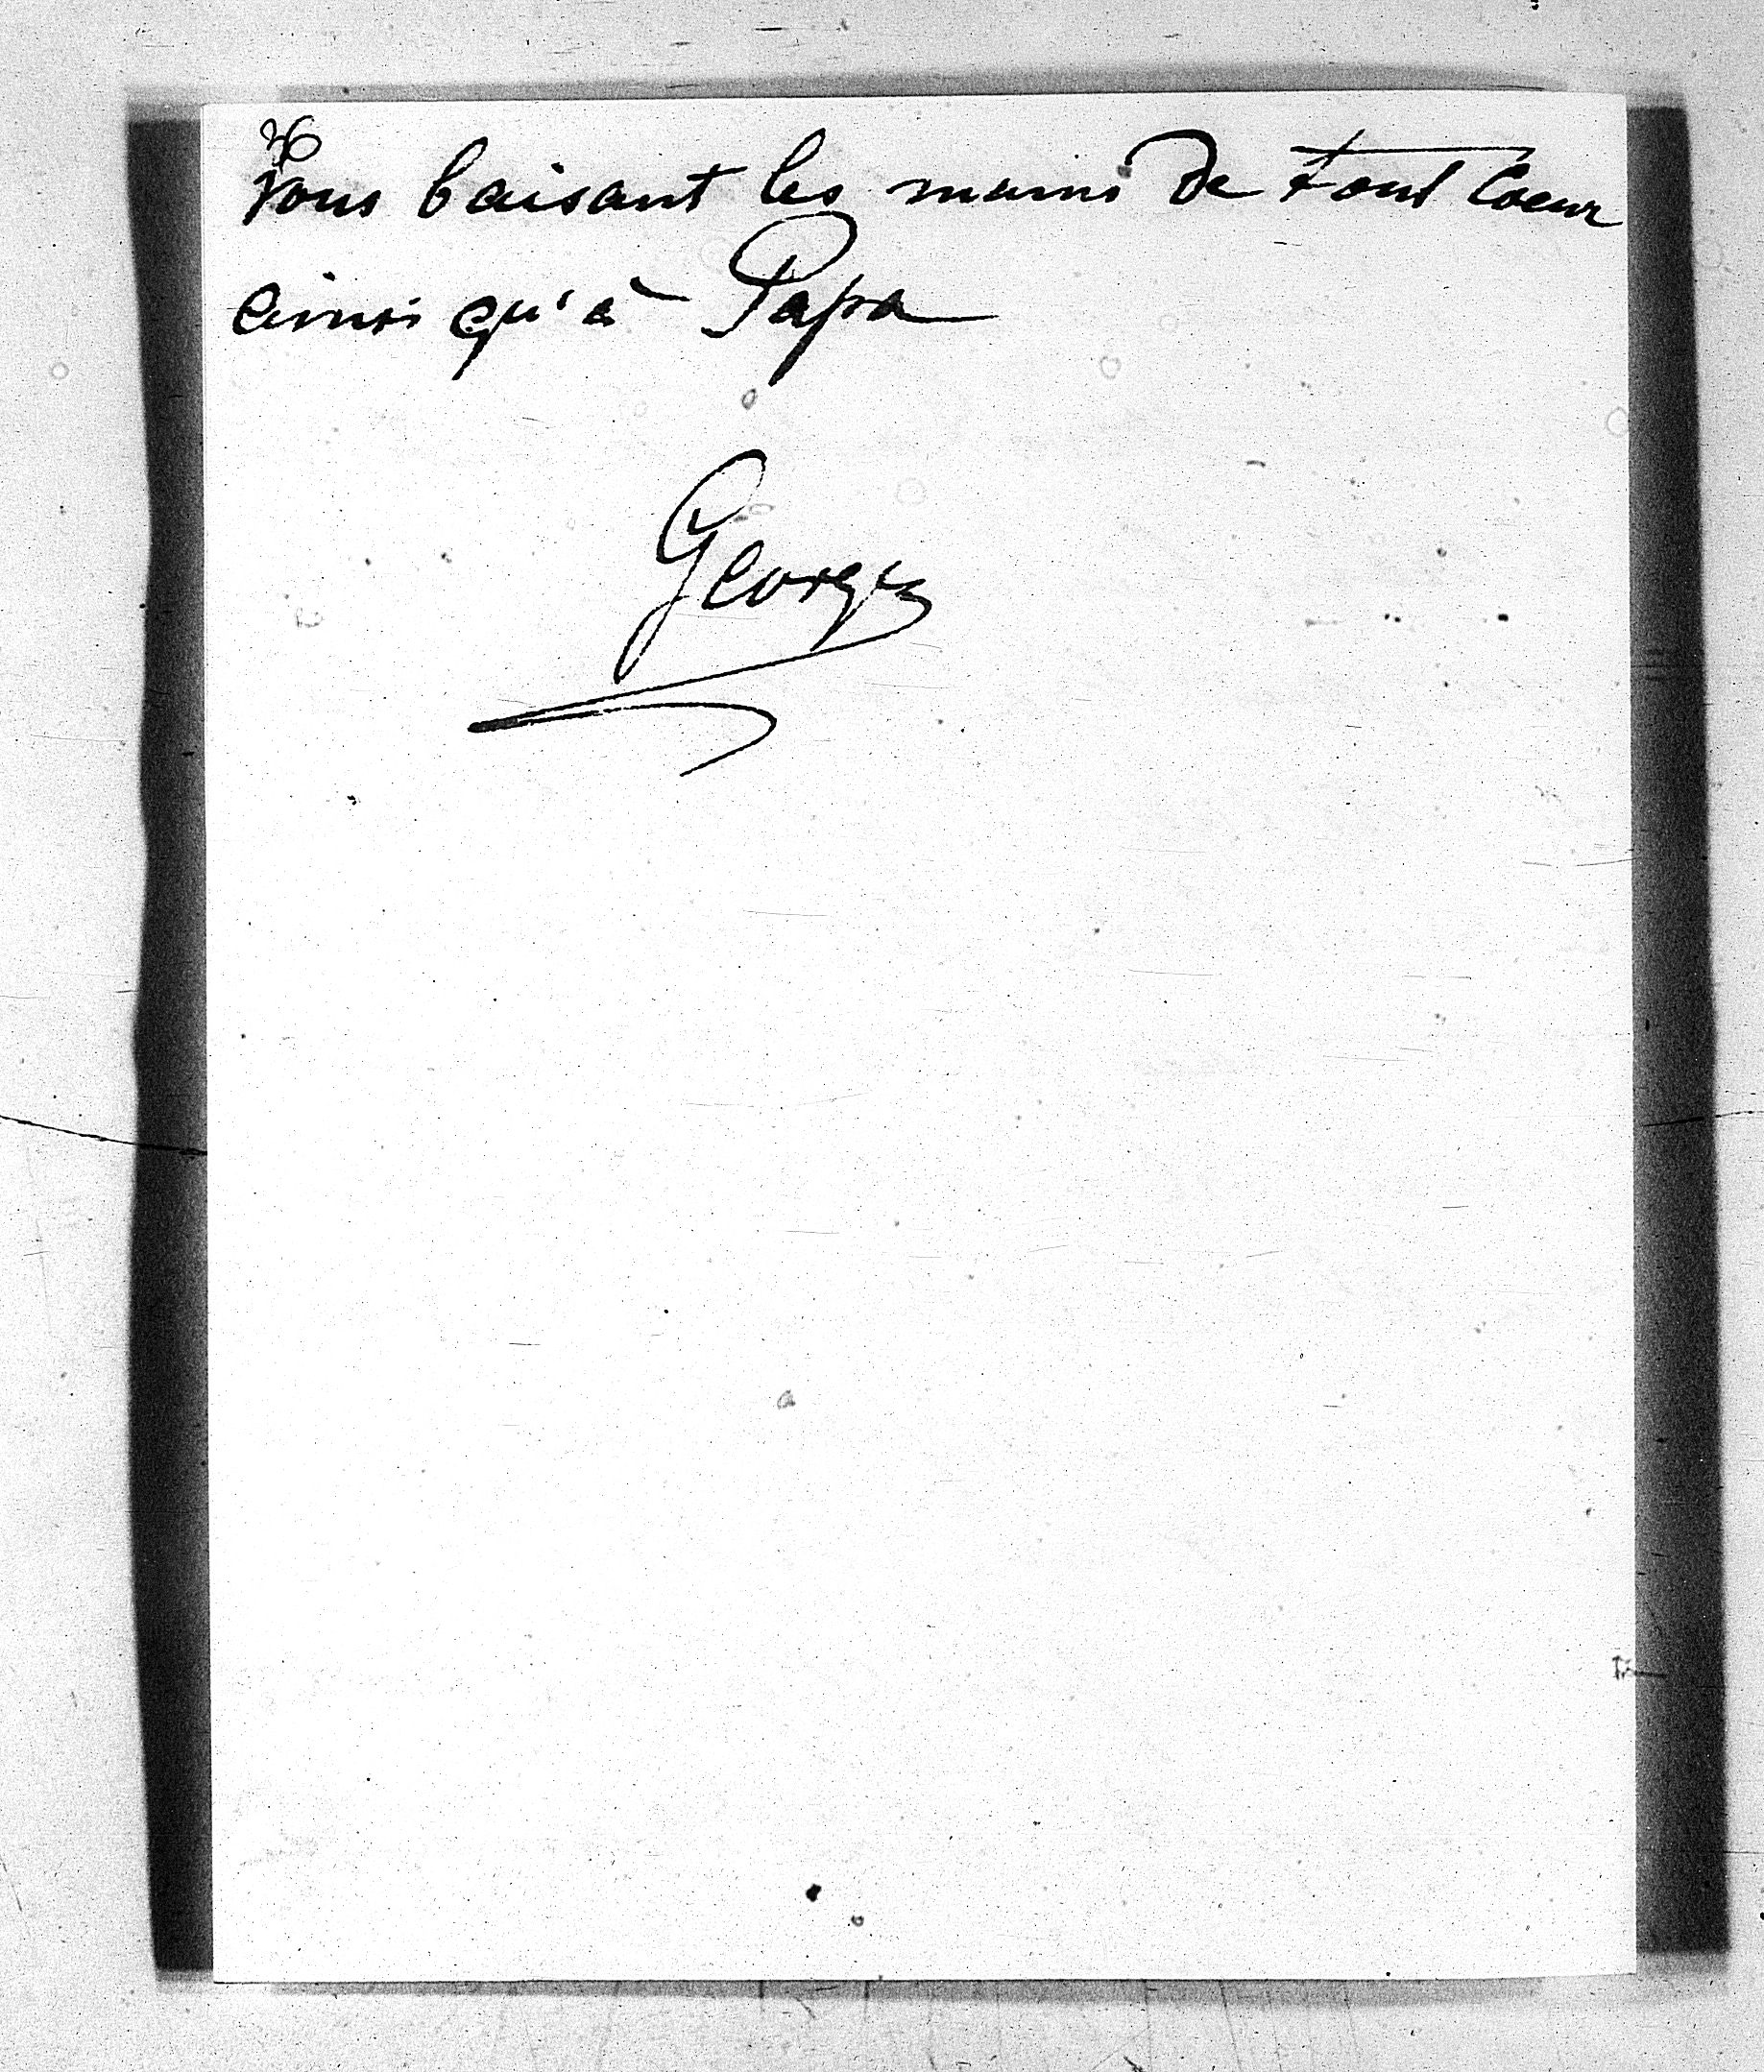 Vous baisant les mains de tout coeur
ainsi qu'à Papa
Georges